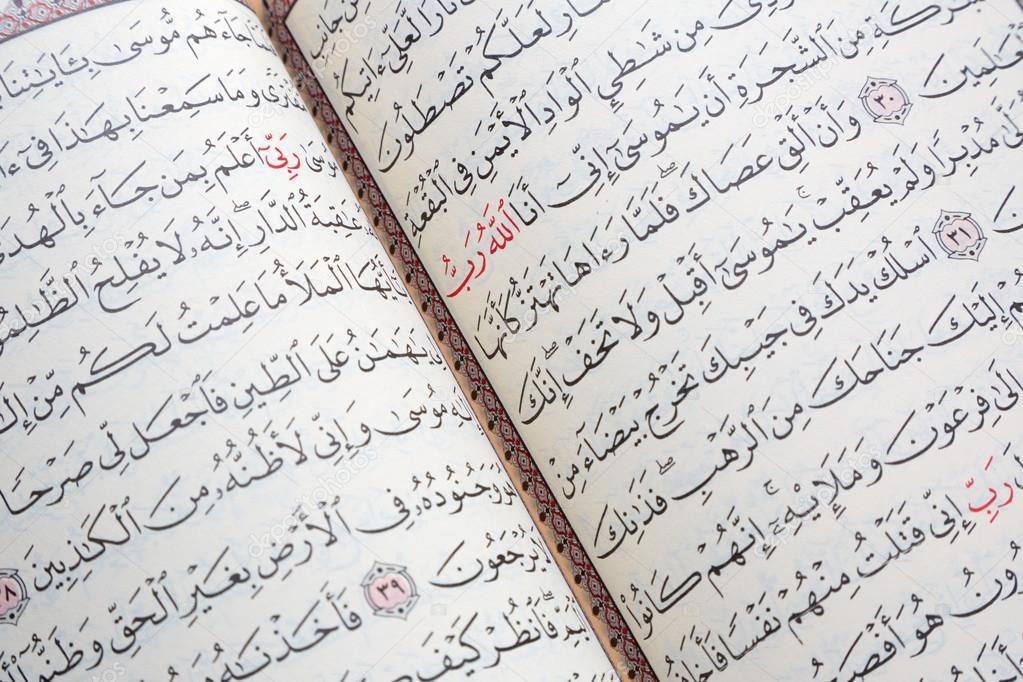 مِن جَانِبِ
نَارًا لَّعَلِّىٓ ءَاتِيكُم
لَعَلَّكُمْ تَصْطَلُونَ
مِن شَٰطِئِ ٱلْوَادِ ٱلْأَيْمَنِ فِى ٱلْبُقْعَةِ
مِنَ ٱلشَّجَرَةِ أَن يَٰمُوسَىٰٓ إِنِّىٓ أَنَا ٱللَّهُ رَبُّ
ٱلْعَٰلَمِينَ ٣٠ وَأَنْ أَلْقِ عَصَاكَ فَلَمَّا رَءَاهَا تَهْتَزُّ كَأَنَّهَا
مُدْبِرًا وَلَمْ يُعَقِّبْ يَٰمُوسَىٰٓ أَقْبِلْ وَلَا تَخَفْ إِنَّكَ
٣١ ٱسْلُكْ يَدَكَ فِى جَيْبِكَ تَخْرُجْ بَيْضَآءَ مِنْ
إِلَيْكَ جَنَاحَكَ مِنَ ٱلرَّهْبِ فَذَٰنِكَ
إِلَىٰ فِرْعَوْنَ وَمَلَإِيْهِۦٓ إِنَّهُمْ كَانُوا۟
رَبِّ إِنِّى قَتَلْتُ مِنْهُمْ نَفْسًا فَأَخَافُ
هُوَ أَفْصَحُ
جَآءَهُم مُّوسَىٰ بِـَٔايَٰتِنَا
وَمَا سَمِعْنَا بِهَٰذَا فِىٓ
مُوسَىٰ رَبِّىٓ أَعْلَمُ بِمَن جَآءَ بِٱلْهُدَىٰ
عَٰقِبَةُ ٱلدَّارِ إِنَّهُۥ لَا يُفْلِحُ
ٱلْمَلَأُ مَا عَلِمْتُ لَكُم مِّنْ إِلَٰهٍ
يَٰهَٰمَٰنُ عَلَى ٱلطِّينِ فَٱجْعَل لِّى صَرْحًا
إِلَٰهِ مُوسَىٰ وَإِنِّى لَأَظُنُّهُۥ مِنَ ٱلْكَٰذِبِينَ ٣٨
وَجُنُودُهُۥ فِى ٱلْأَرْضِ بِغَيْرِ ٱلْحَقِّ وَظَنُّوٓا۟
يُرْجَعُونَ ٣٩ فَأَخَذْنَٰهُ
فَٱنظُرْ كَيْفَ